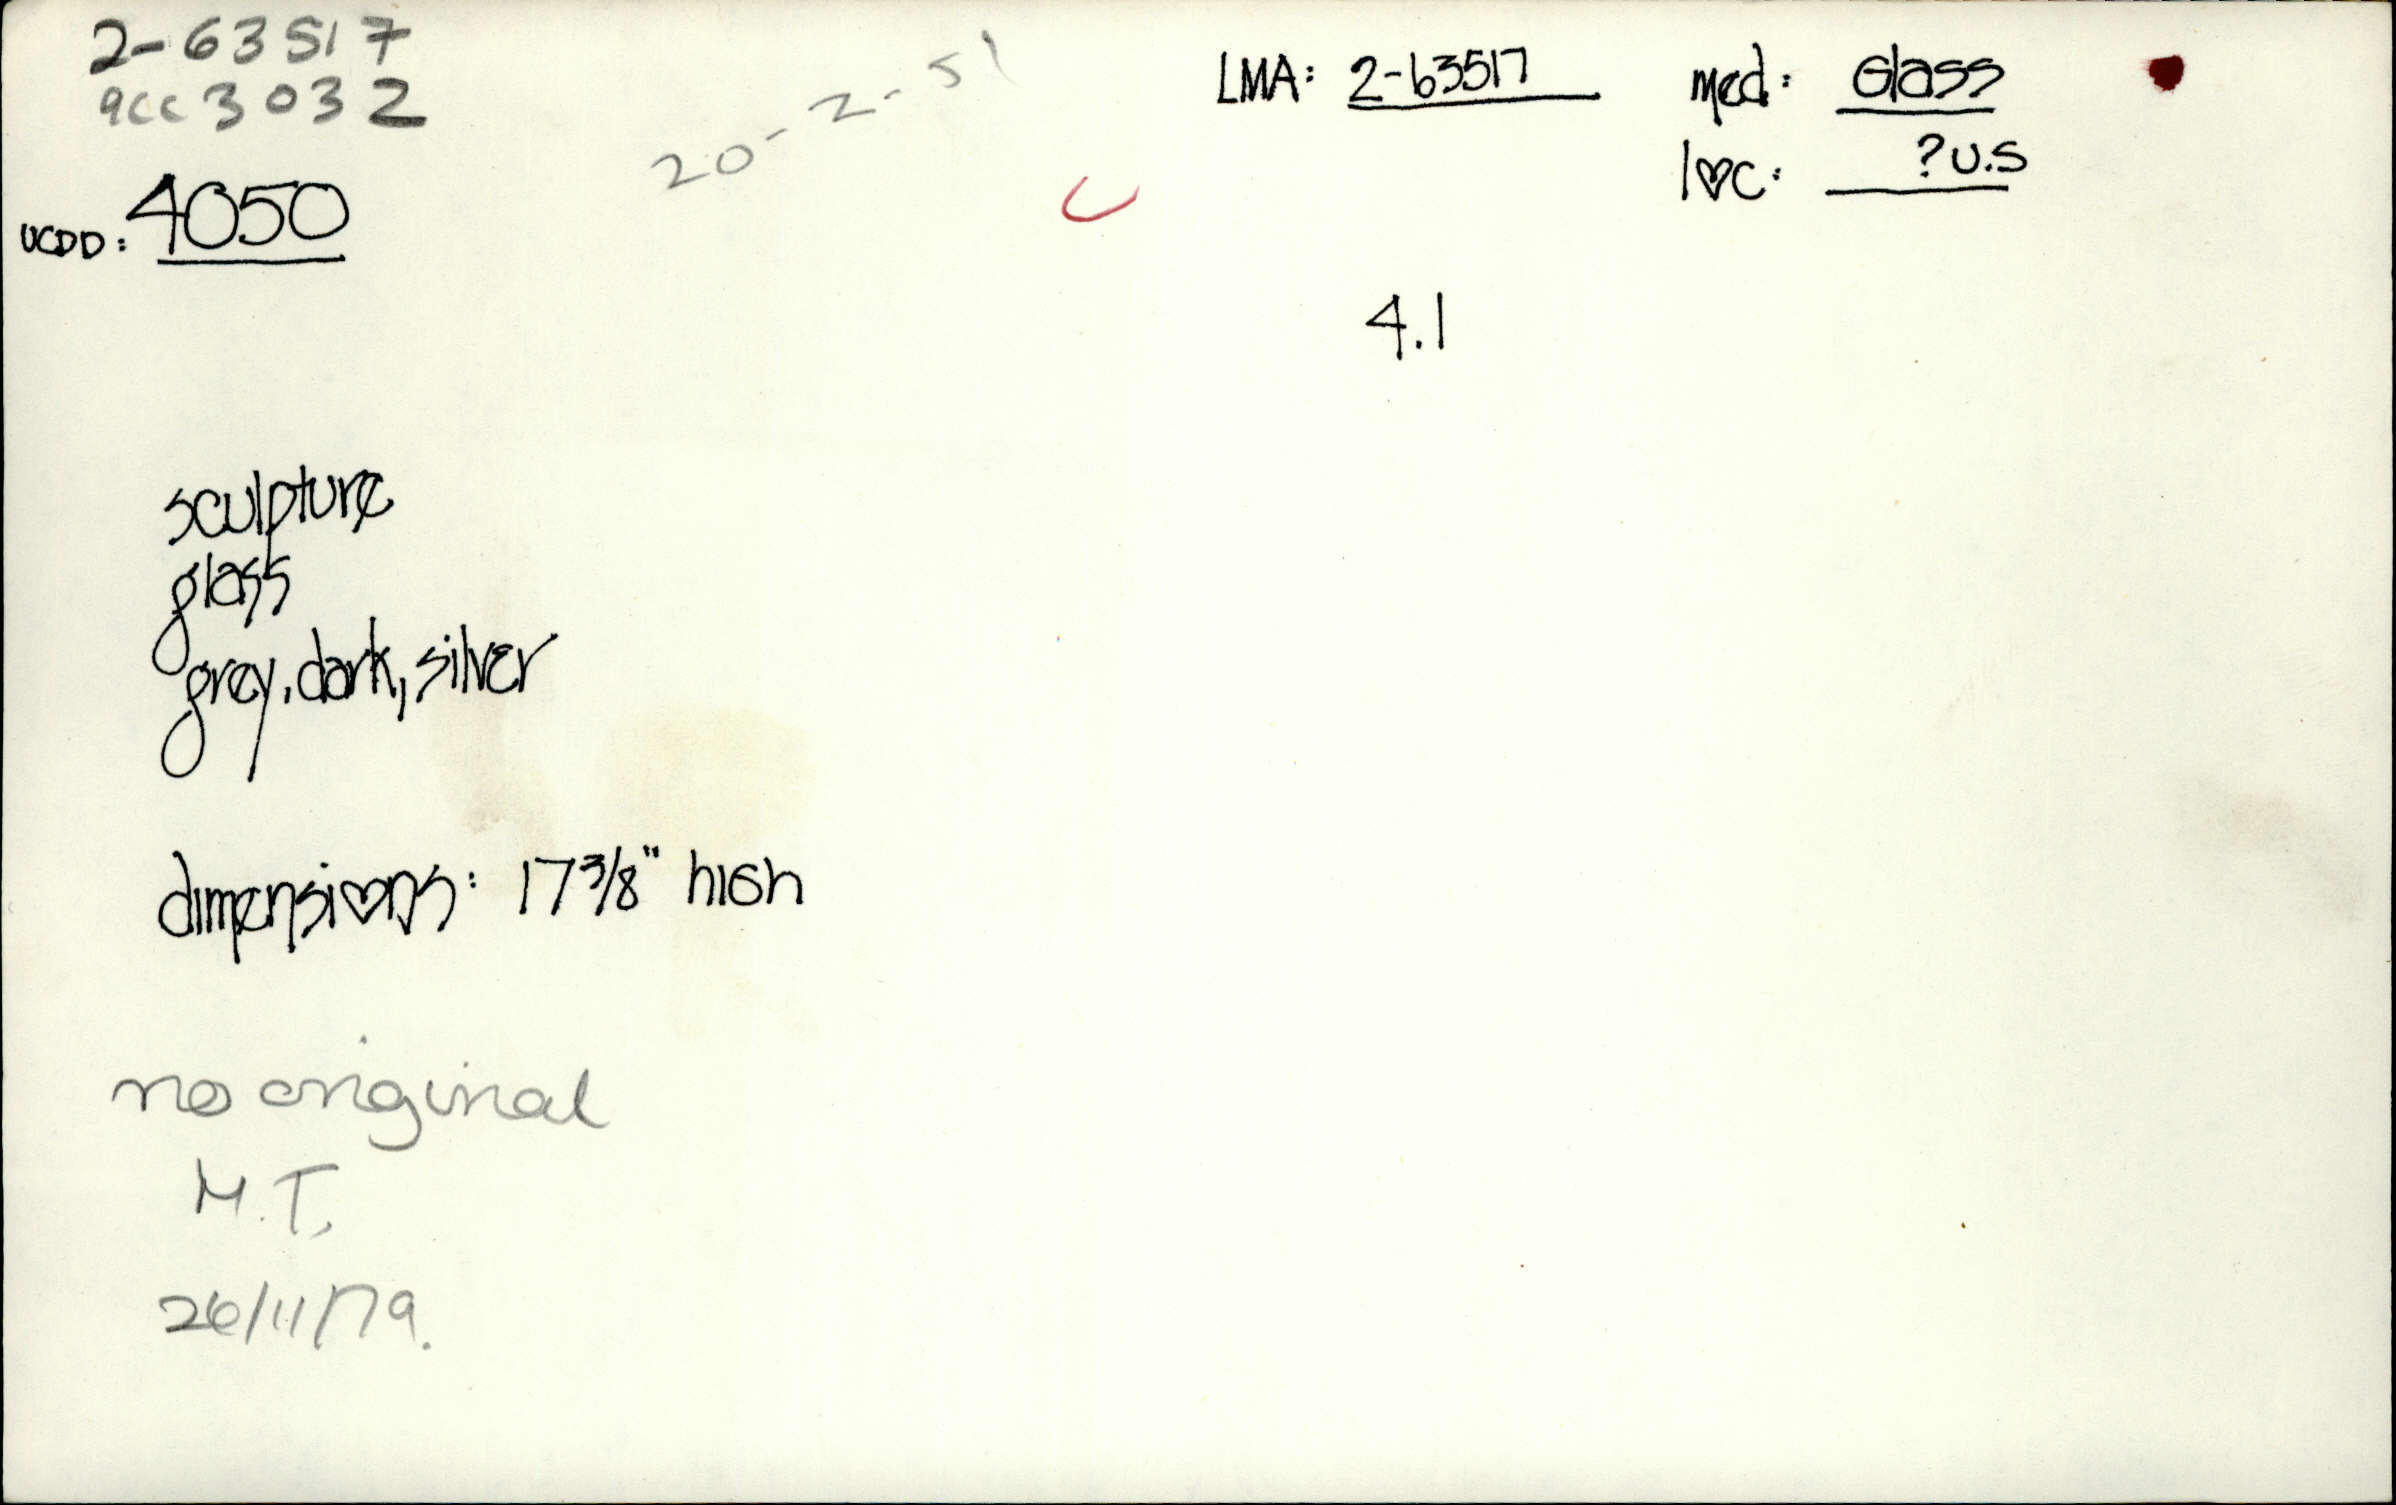 2-63517
acc 3032
20-2-51
LMA: 2-63517
med: Glass
loc: ?U.S
UCDD: 4050
4.1
sculpture
glass
grey, dark, silver
dimensions: 17 3/8" high
no original
M.T.
26/11/79.